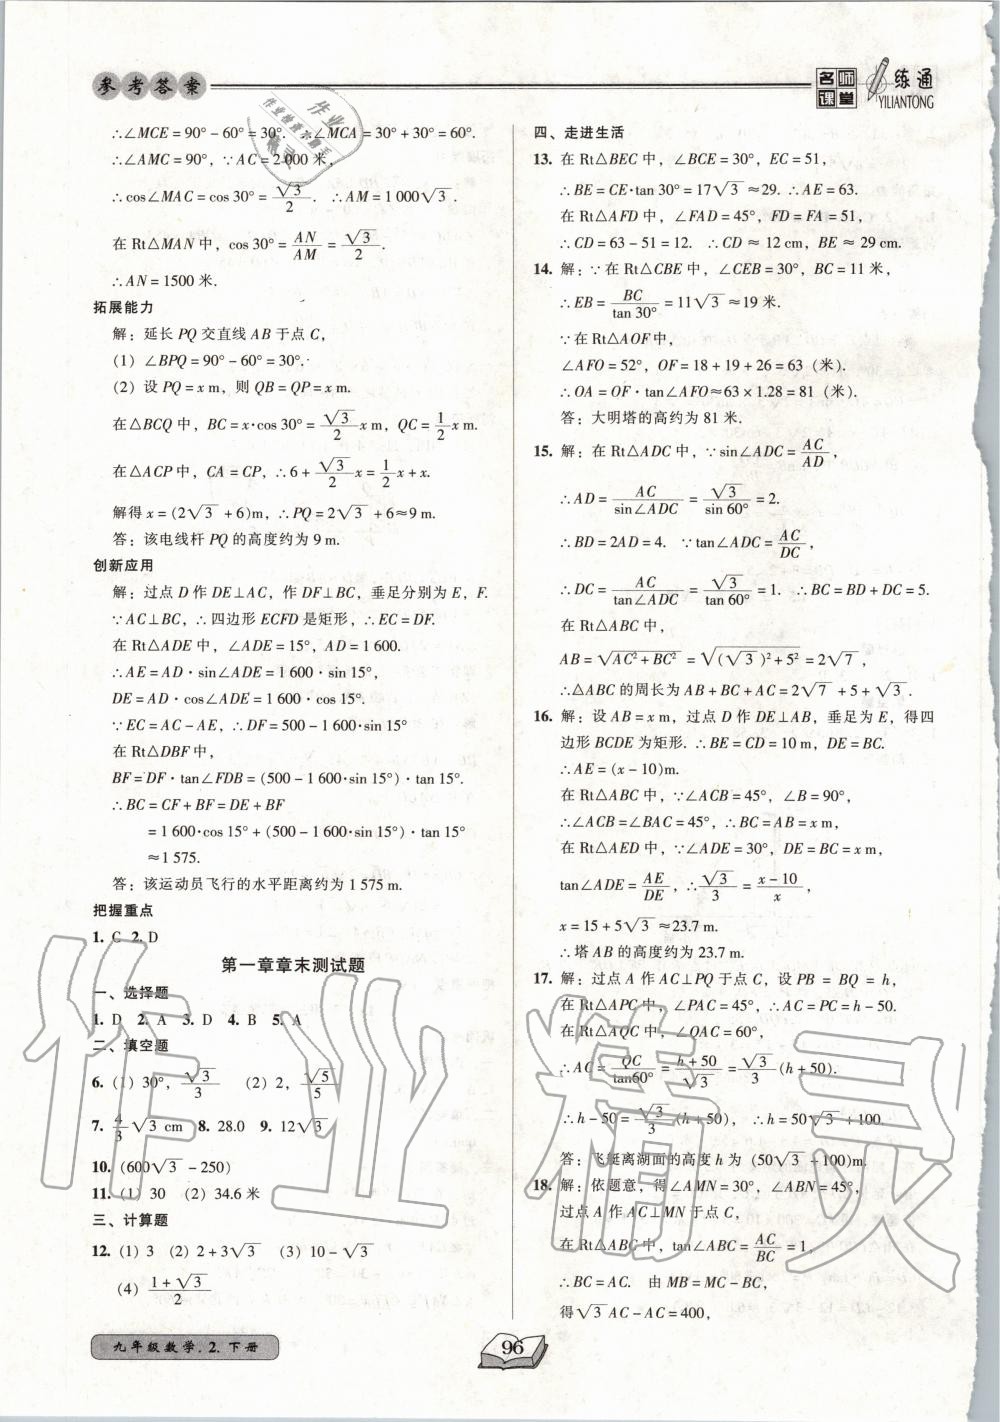 参考答案
名师课堂 一练通
YILIANTONG
∴∠MCE = 90° - 60° = 30°. ∴∠MCA = 30° + 30° = 60°.
∴∠AMC = 90°, ∵AC = 2 000 米,
∴cos∠MAC = cos 30° = √3/2. ∴AM = 1 000√3.
在 Rt△MAN 中, cos 30° = AN/AM = √3/2.
∴AN = 1500 米.
拓展能力
解: 延长 PQ 交直线 AB 于点 C,
(1) ∠BPQ = 90° - 60° = 30°.
(2) 设 PQ = x m, 则 QB = QP = x m.
在△BCQ 中, BC = x·cos 30° = √3/2 x m, QC = 1/2 x m.
在△ACP 中, CA = CP, ∴6 + √3/2 x = 1/2 x + x.
解得 x = (2√3 + 6)m, ∴PQ = 2√3 + 6≈9 m.
答: 该电线杆 PQ 的高度约为 9 m.
创新应用
解: 过点 D 作 DE⊥AC, 作 DF⊥BC, 垂足分别为 E, F.
∵AC⊥BC, ∴四边形 ECFD 是矩形, ∴EC = DF.
在 Rt△ADE 中, ∠ADE = 15°, AD = 1 600.
∴AE = AD·sin∠ADE = 1 600·sin 15°,
DE = AD·cos∠ADE = 1 600·cos 15°.
∵EC = AC - AE, ∴DF = 500 - 1 600·sin 15°
在 Rt△DBF 中,
BF = DF·tan∠FDB = (500 - 1 600·sin 15°)·tan 15°.
∴BC = CF + BF = DE + BF
= 1 600·cos 15° + (500 - 1 600·sin 15°)·tan 15°
≈1 575.
答: 该运动员飞行的水平距离约为 1 575 m.
把握重点
1. C 2. D
第一章章末测试题
一、选择题
1. D 2. A 3. D 4. B 5. A
二、填空题
6. (1) 30°, √3/3 (2) 2, √5/5
7. 4/3 √3 cm 8. 28.0 9. 12√3
10. (600√3 - 250)
11. (1) 30 (2) 34.6 米
三、计算题
12. (1) 3 (2) 2 + 3√3 (3) 10 - √3
(4) (1 + √3)/2
四、走进生活
13. 在 Rt△BEC 中, ∠BCE = 30°, EC = 51,
∴BE = CE·tan 30° = 17√3≈29. ∴AE = 63.
在 Rt△AFD 中, ∠FAD = 45°, FD = FA = 51,
∴CD = 63 - 51 = 12. ∴CD ≈ 12 cm, BE ≈ 29 cm.
14. 解: ∵在 Rt△CBE 中, ∠CEB = 30°, BC = 11 米,
∴EB = BC/tan 30° = 11√3≈19 米.
∵在 Rt△AOF 中,
∠AFO = 52°, OF = 18 + 19 + 26 = 63 (米).
∴OA = OF·tan∠AFO≈63 × 1.28 = 81 (米).
答: 大明塔的高约为 81 米.
15. 解: 在 Rt△ADC 中, ∵sin∠ADC = AC/AD,
∴AD = AC/sin∠ADC = √3/sin 60° = 2.
∴BD = 2AD = 4. ∵tan∠ADC = AC/DC,
∴DC = AC/tan∠ADC = √3/tan 60° = 1. ∴BC = BD + DC = 5.
在 Rt△ABC 中,
AB = √(AC² + BC²) = √((√3)² + 5²) = 2√7,
∴△ABC 的周长为 AB + BC + AC = 2√7 + 5 + √3.
16. 解: 设 AB = x m, 过点 D 作 DE⊥AB, 垂足为 E, 得四
边形 BCDE 为矩形. ∴BE = CD = 10 m, DE = BC.
∴AE = (x - 10)m.
在 Rt△ABC 中, ∵∠ACB = 45°, ∠B = 90°,
∴∠ACB = ∠BAC = 45°, ∴BC = AB = x m,
在 Rt△AED 中, ∵∠ADE = 30°, DE = BC = x m,
tan∠ADE = AE/DE, ∴√3/3 = (x - 10)/x,
x = 15 + 5√3 ≈23.7 m.
∴塔 AB 的高度约为 23.7 m.
17. 解: 过点 A 作 AC⊥PQ 于点 C, 设 PB = BQ = h,
在 Rt△APC 中, ∠PAC = 45°, ∴AC = PC = h - 50.
在 Rt△AQC 中, ∠QAC = 60°,
∴AC = QC/tan60° = (h + 50)/√3 = √3/3 (h + 50).
∴h - 50 = √3/3 (h + 50), ∴h = 50√3 + 100.
答: 飞艇离湖面的高度 h 为 (50√3 + 100)m.
18. 解: 依题意, 得∠AMN = 30°, ∠ABN = 45°,
过点 A 作 AC⊥MN 于点 C,
在 Rt△ABC 中, tan∠ABC = AC/BC = 1,
∴BC = AC. 由 MB = MC - BC,
得√3 AC - AC = 400,
九年级数学.2.下册
96
作业精灵